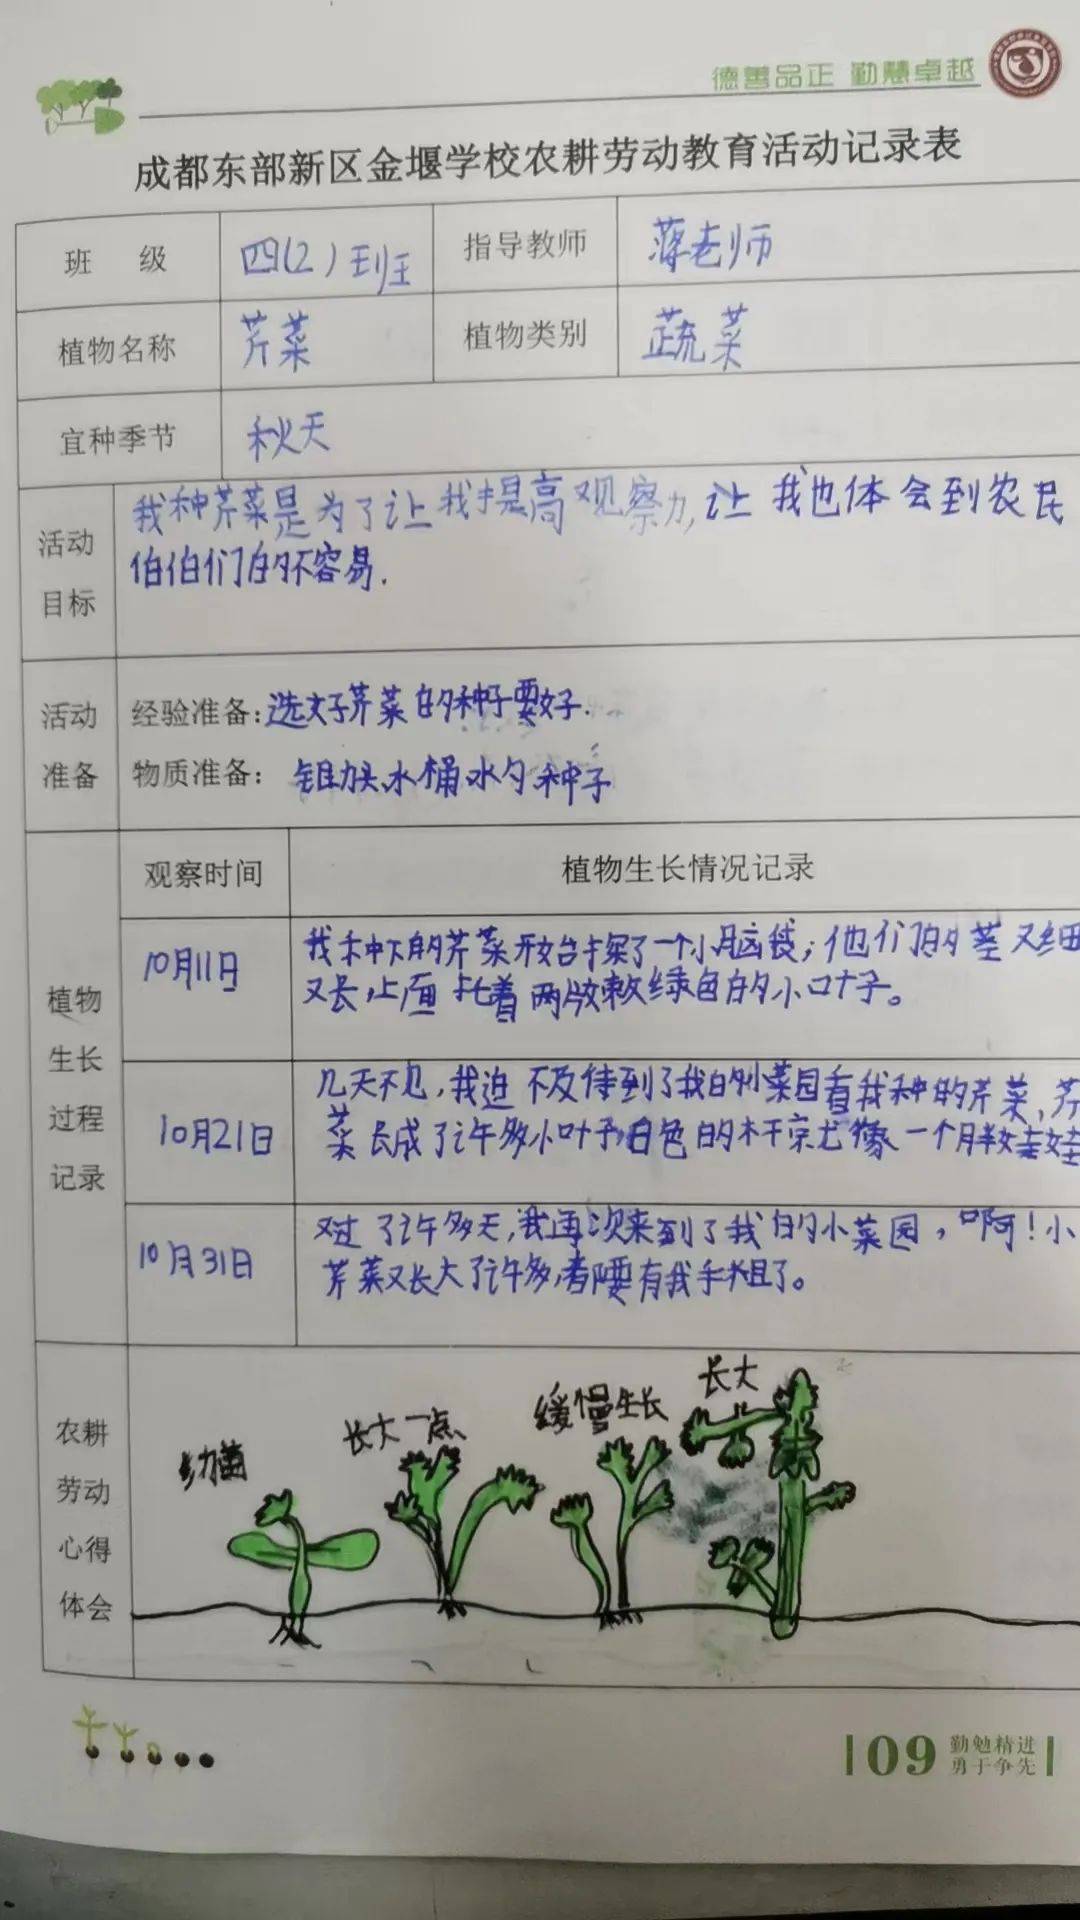 德善品正 勤慧卓越
成都东部新区金堰学校农耕劳动教育活动记录表
班 级 四(2)班 指导教师 蒋老师
植物名称 芹菜 植物类别 蔬菜
宜种季节 秋天
活动目标
我种芹菜是为了让我提高观察力,让我也体会到农民
伯伯们的不容易.
活动准备
经验准备:选好芹菜的种子要好.
物质准备: 锄头水桶水勺种子
植物生长过程记录
观察时间 植物生长情况记录
10月11日
我种下的芹菜开始探了一个小脑袋;他们的茎又细
又长,上面托着两片嫩绿色的小叶子。
10月21日
几天不见,我迫不及待到了我的小菜园看我种的芹菜,芹
菜长成了许多小叶子,白色的杆就像一个胖娃娃
10月31日
过了许多天,我再次来到了我的小菜园,啊!小
芹菜又长大了许多,都要有我手粗了。
农耕劳动心得体会
幼苗
长大一点
缓慢生长
长大
09
勤勉精进
勇于争先